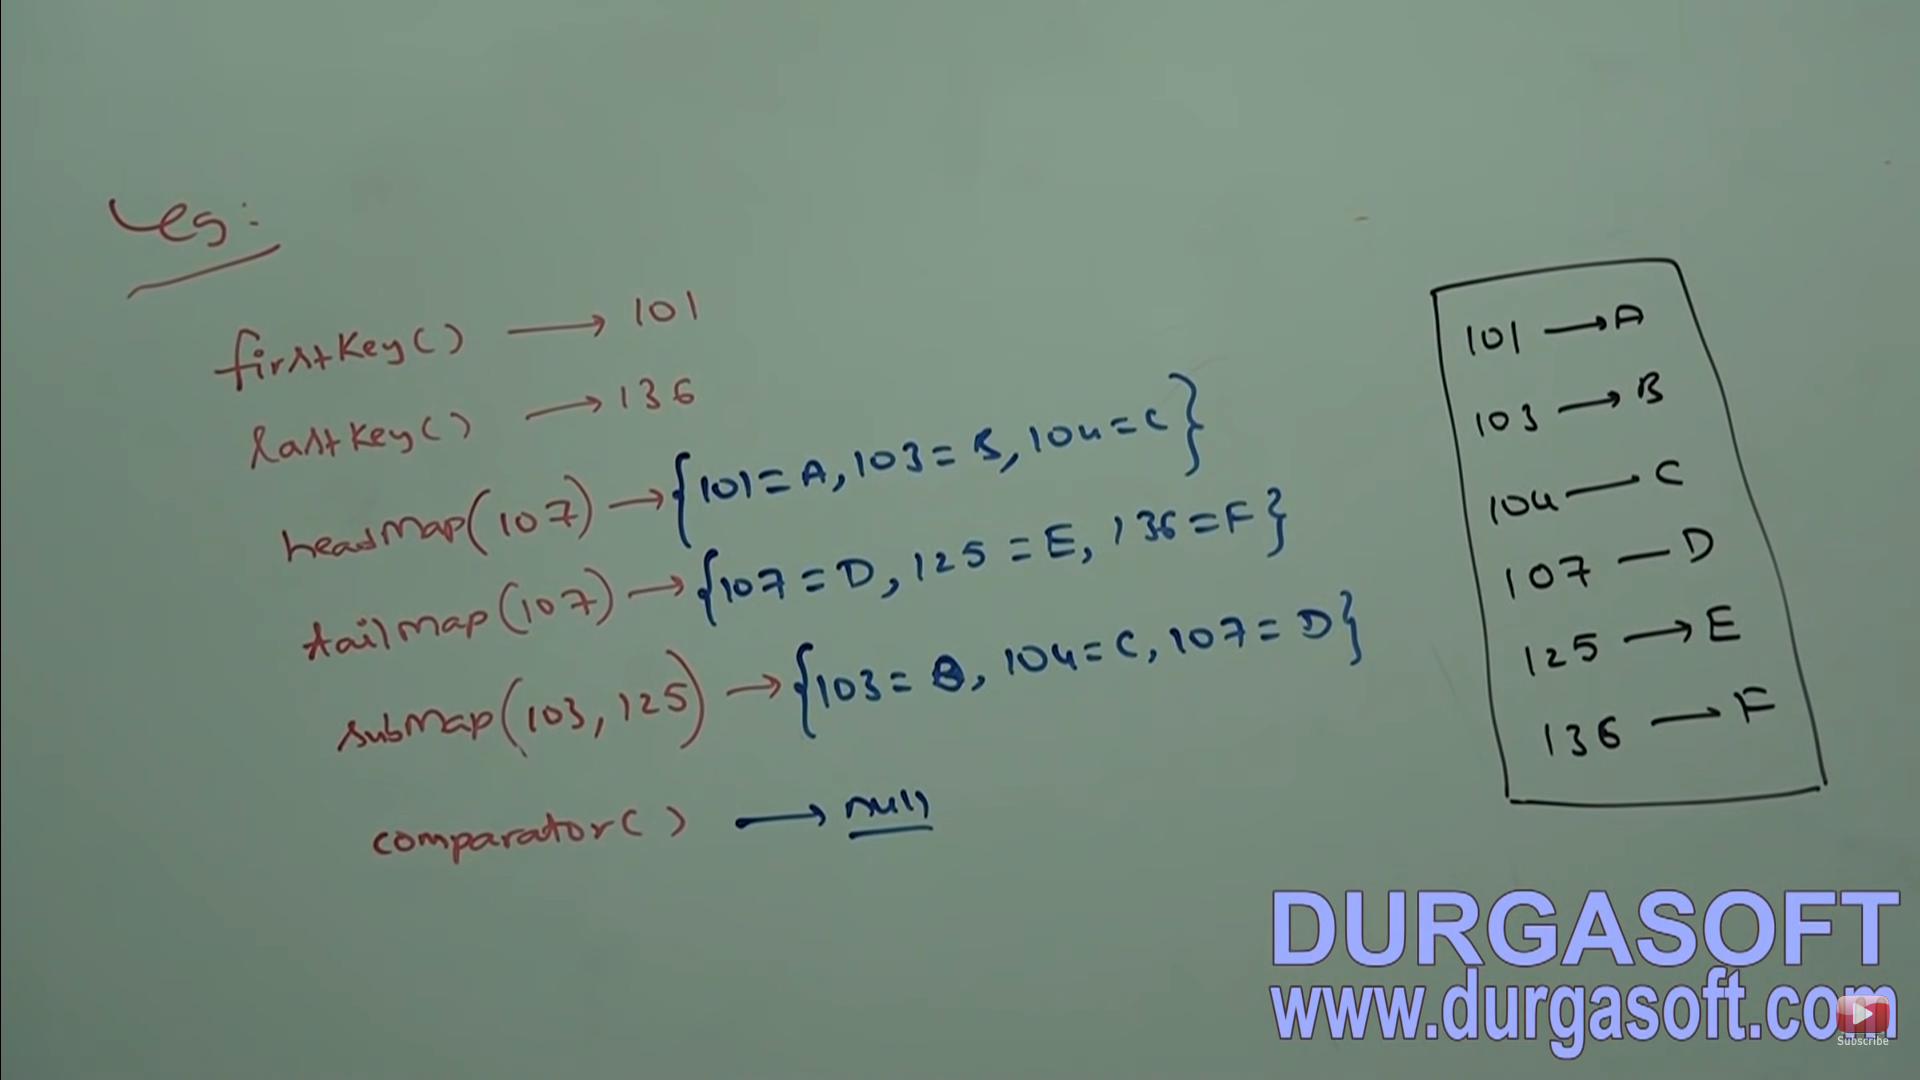 eg:
firstKey() → 101
lastKey() → 136
headMap(107) → {101=A, 103=B, 104=C}
tailMap(107) → {107=D, 125=E, 136=F}
subMap(103, 125) → {103=B, 104=C, 107=D}
comparator() → null
101 → A
103 → B
104 — C
107 — D
125 → E
136 → F
DURGASOFT
www.durgasoft.com
Subscribe